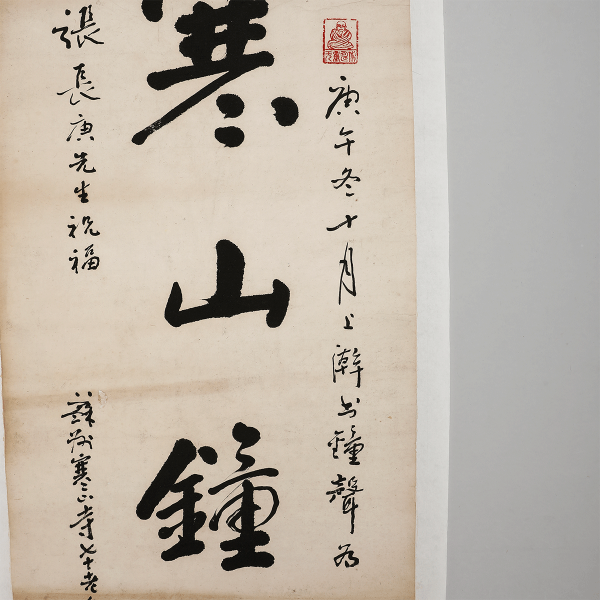 庚午冬十月上澣书鐘聲为
寒山鐘
張長庚先生祝福
蘇州寒山寺七十老